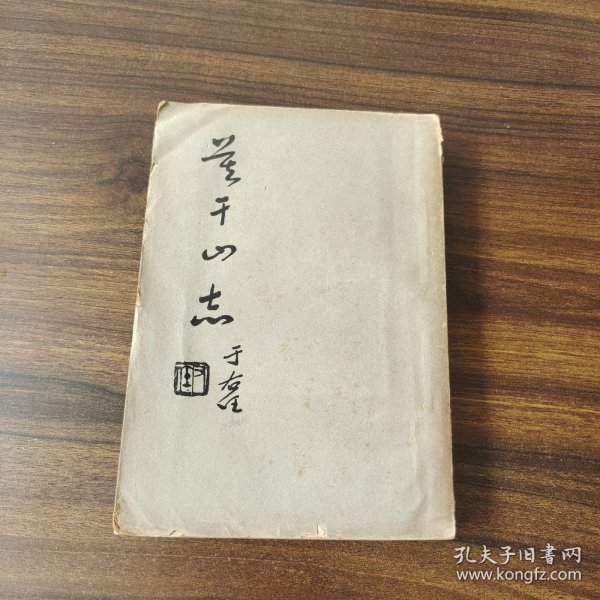 莫干山志
于右任
孔夫子旧书网
www.kongfz.com